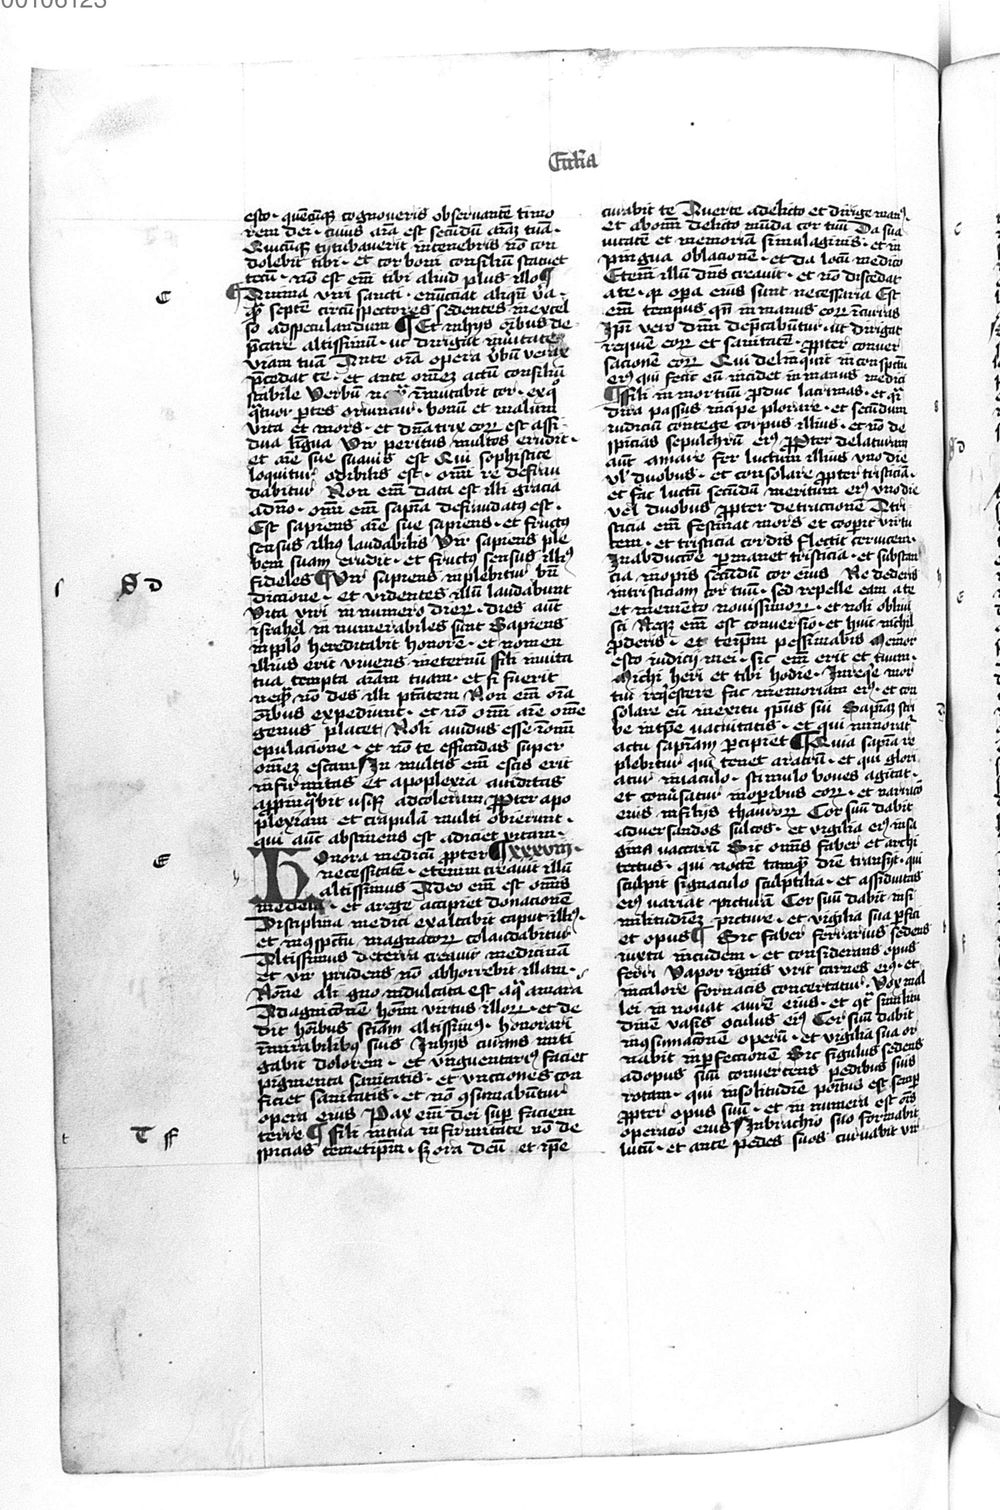 00106123
Eccl̄ia
esto · quēcūqꝫ cognoueris obseruantē timo
rem dei · cuius aīa est secūdū aīaꝫ tuā ·
Quicūqꝫ tytubauerit intenebris nō con
dolebit tibi · et cor boni consiliū statuet
tecū · nō est em̄ tibi aliud plus illo ¶
¶ Anima viri sancti · enūciat aliqn̄ v̄a ·
qꝫ septē circūspectores sedentes inexcel
so adspeculandum ¶ Et inhijs oībus de
p̄care altissimū · ut dirigat inūitate
viam tuā Ante oīa opera v̄bū verax
p̄cedat te · et ante oēꝫ actū consiliū
stabile Verbū neqꝫ īmutabit cor · ex quo
qͣtuor ꝑtes oriuntur · bonū et malum
vita et mors · et dn̄atrix eoꝝ est assi
dua lingua Vir peritus multos erudit ·
et aīe sue suauis est Qui sophistice
loquitur odibilis est · om̄i re defrau
dabitur Non em̄ data est illi gracia
adn̄o · om̄i em̄ sapīa defraudatus est ·
Est sapiens aīe sue sapiens · et fructꝯ
sensus illiꝯ laudabilis Vir sapiens ple
bem suam erudit · et fructꝯ sensus illiꝯ
fideles ¶ Vir sapiens inplebitur bn̄
diccione · et videntes illū laudabunt
Vita viri in numero dieꝝ · dies aūt
israhel in numerabiles sunt Sapiens
inpplo hereditabit honorē · et nomen
illius erit viuens ineternū Fili inuita
tua tempta aīam tuam · et si fuerit
neqꝫ nō des illi ptātem Non em̄ oīa
oībus expediunt · et nō om̄i aīe om̄e
genus placet Noli auidus esse ī om̄i
epulacione · et nō te effundas super
om̄eꝫ escam In multis em̄ escis erit
infirmitas et apoplexia auiditas
appinqͣbit usqꝫ adcoleram ꝓpter apo
plexiam · et crapulā multi obierunt ·
qui aūt abstinens est adiciet vitam ·
Honora medicū ꝓpter ¶ xxxviij ·
necessitatē · etenim creauit illū
altissimus Adeo em̄ est om̄is
medela · et arege accipiet donacionē
Disciplina medici exaltabit caput illiꝯ ·
et inꝯspctū magnatoꝝ colaudabitur
Altissimus deterra creauit medicinā
et vir prudens nō abhorrebit illam ·
Nōne ali gno indulcata est aqͣ amara
Adagnicōnē hom̄ virtus illoꝝ · et de
dit hōibus sciaꝫ altissimꝯ · honorari
ī mirabilibꝯ suis Inhijs curans miti
gabit dolorem · et vnguentariꝯ faciet
pigmenta sanitatis · et vnctiones con
ficiet sanitatis · et nō ꝯsumabūtur
opera eius Pax em̄ dei suꝑ faciem
terre ¶ Fili intua infirmitate nō de
spicias temetip̄m · sꝫ ora deū et ip̄e
curabit te Auerte adelicto et dirige manꝯ ·
et abom̄i delicto mūda cor tuū Da sua
uitatē et memoriā similaginis · et in
pingua oblacionē · et da locū medico
Etem̄ illū dn̄s creauit · et nō discedat
ate · qꝛ oꝑa eius sunt necessaria Est
em̄ tempus qn̄ in manus eoꝝ īcurras
Ip̄i vero dn̄m dep̄cabūtur · ut dirigat
requiē eoꝝ et sanitatē · ꝓpter conuer
sacionē eoꝝ Qui delinquit inconspectu
eiꝯ qui fecit eū incidet in manus medici
¶ Fili in mortuū ꝓduc lacrimas · et qͣi
dira passus incipe plorare · et secūdum
iudiciū contege corpus illius · et nō de
spicias sepulchrū eiꝯ ꝓpter delaturam
aūt amare fer luctum illius vno die
ul̄ duobus · et consolare ꝓpter tristiciā ·
et fac luctū secūdū meritum eiꝯ vno die
vel duobus ꝓpter detractionē Atri
sticia em̄ festinat mors et cooꝑit virtu
tem · et tristicia cordis flectit ceruicem ·
In abductōne ꝑmanet tristicia · et substan
cia inopis secūdū cor eius Ne dederis
intristiciam cor tuū · sed repelle eam ate
et memēto nouissimoꝝ · et noli obliui
sci Neqꝫ em̄ est conuersio · et huic nichil
ꝓderis · et teip̄m pessimabis Memor
esto iudicij mei · sic em̄ erit et tuum ·
Michi heri et tibi hodie · Inreqͥe mor
tui reqͥescere fac memoriam eiꝯ · et con
solare eū inexitu sp̄us sui Sapiaꝫ scri
be intꝑe vacuitatis · et qui minorat̄
actu sapiam ꝑcipiet ¶ Quia sapīa re
plebitur qui tenet aratrū · et qui glori
atur iniaculo · stimulo boues agitat ·
et conūsatur inoꝑibus eoꝝ · et narracō
eius infilijs thauroꝝ Cor suū dabit
aduersandos sulcos · et vigilia eiꝯ insa
gina vaccarū Sic om̄is faber et archi
tectus · qui noctē tamqꝫ diē transijt · qui
sculpit signaculo sculptilia · et assiduitas
eiꝯ variat picturā Cor suū dabit insi
militudinēꝫ picture · et vigilia sua ꝑfici
et opus ¶ Sic faber ferrarius sedens
iuxta incudem · et considerans opus
ferri Vapor ignis vrit carnes eiꝯ · et
incalore fornacis concertatur · Vox mal
lei in nouat aurē eius · et ꝯtͣ similitu
dinē vasis oculus eiꝯ Cor suū dabit
inꝯsumacōnē operū · et vigilia sua or
nabit inꝑfectionē Sic figulus sedens
adopus suū conuertens pedibus suis
rotam · qui insolitudīe positus est semꝑ
ꝓpter opus suū · et in numera est oīs
operacio eius In brachio suo formabit
lutū · et ante pedes suos curuabit vir
C
D
E
F